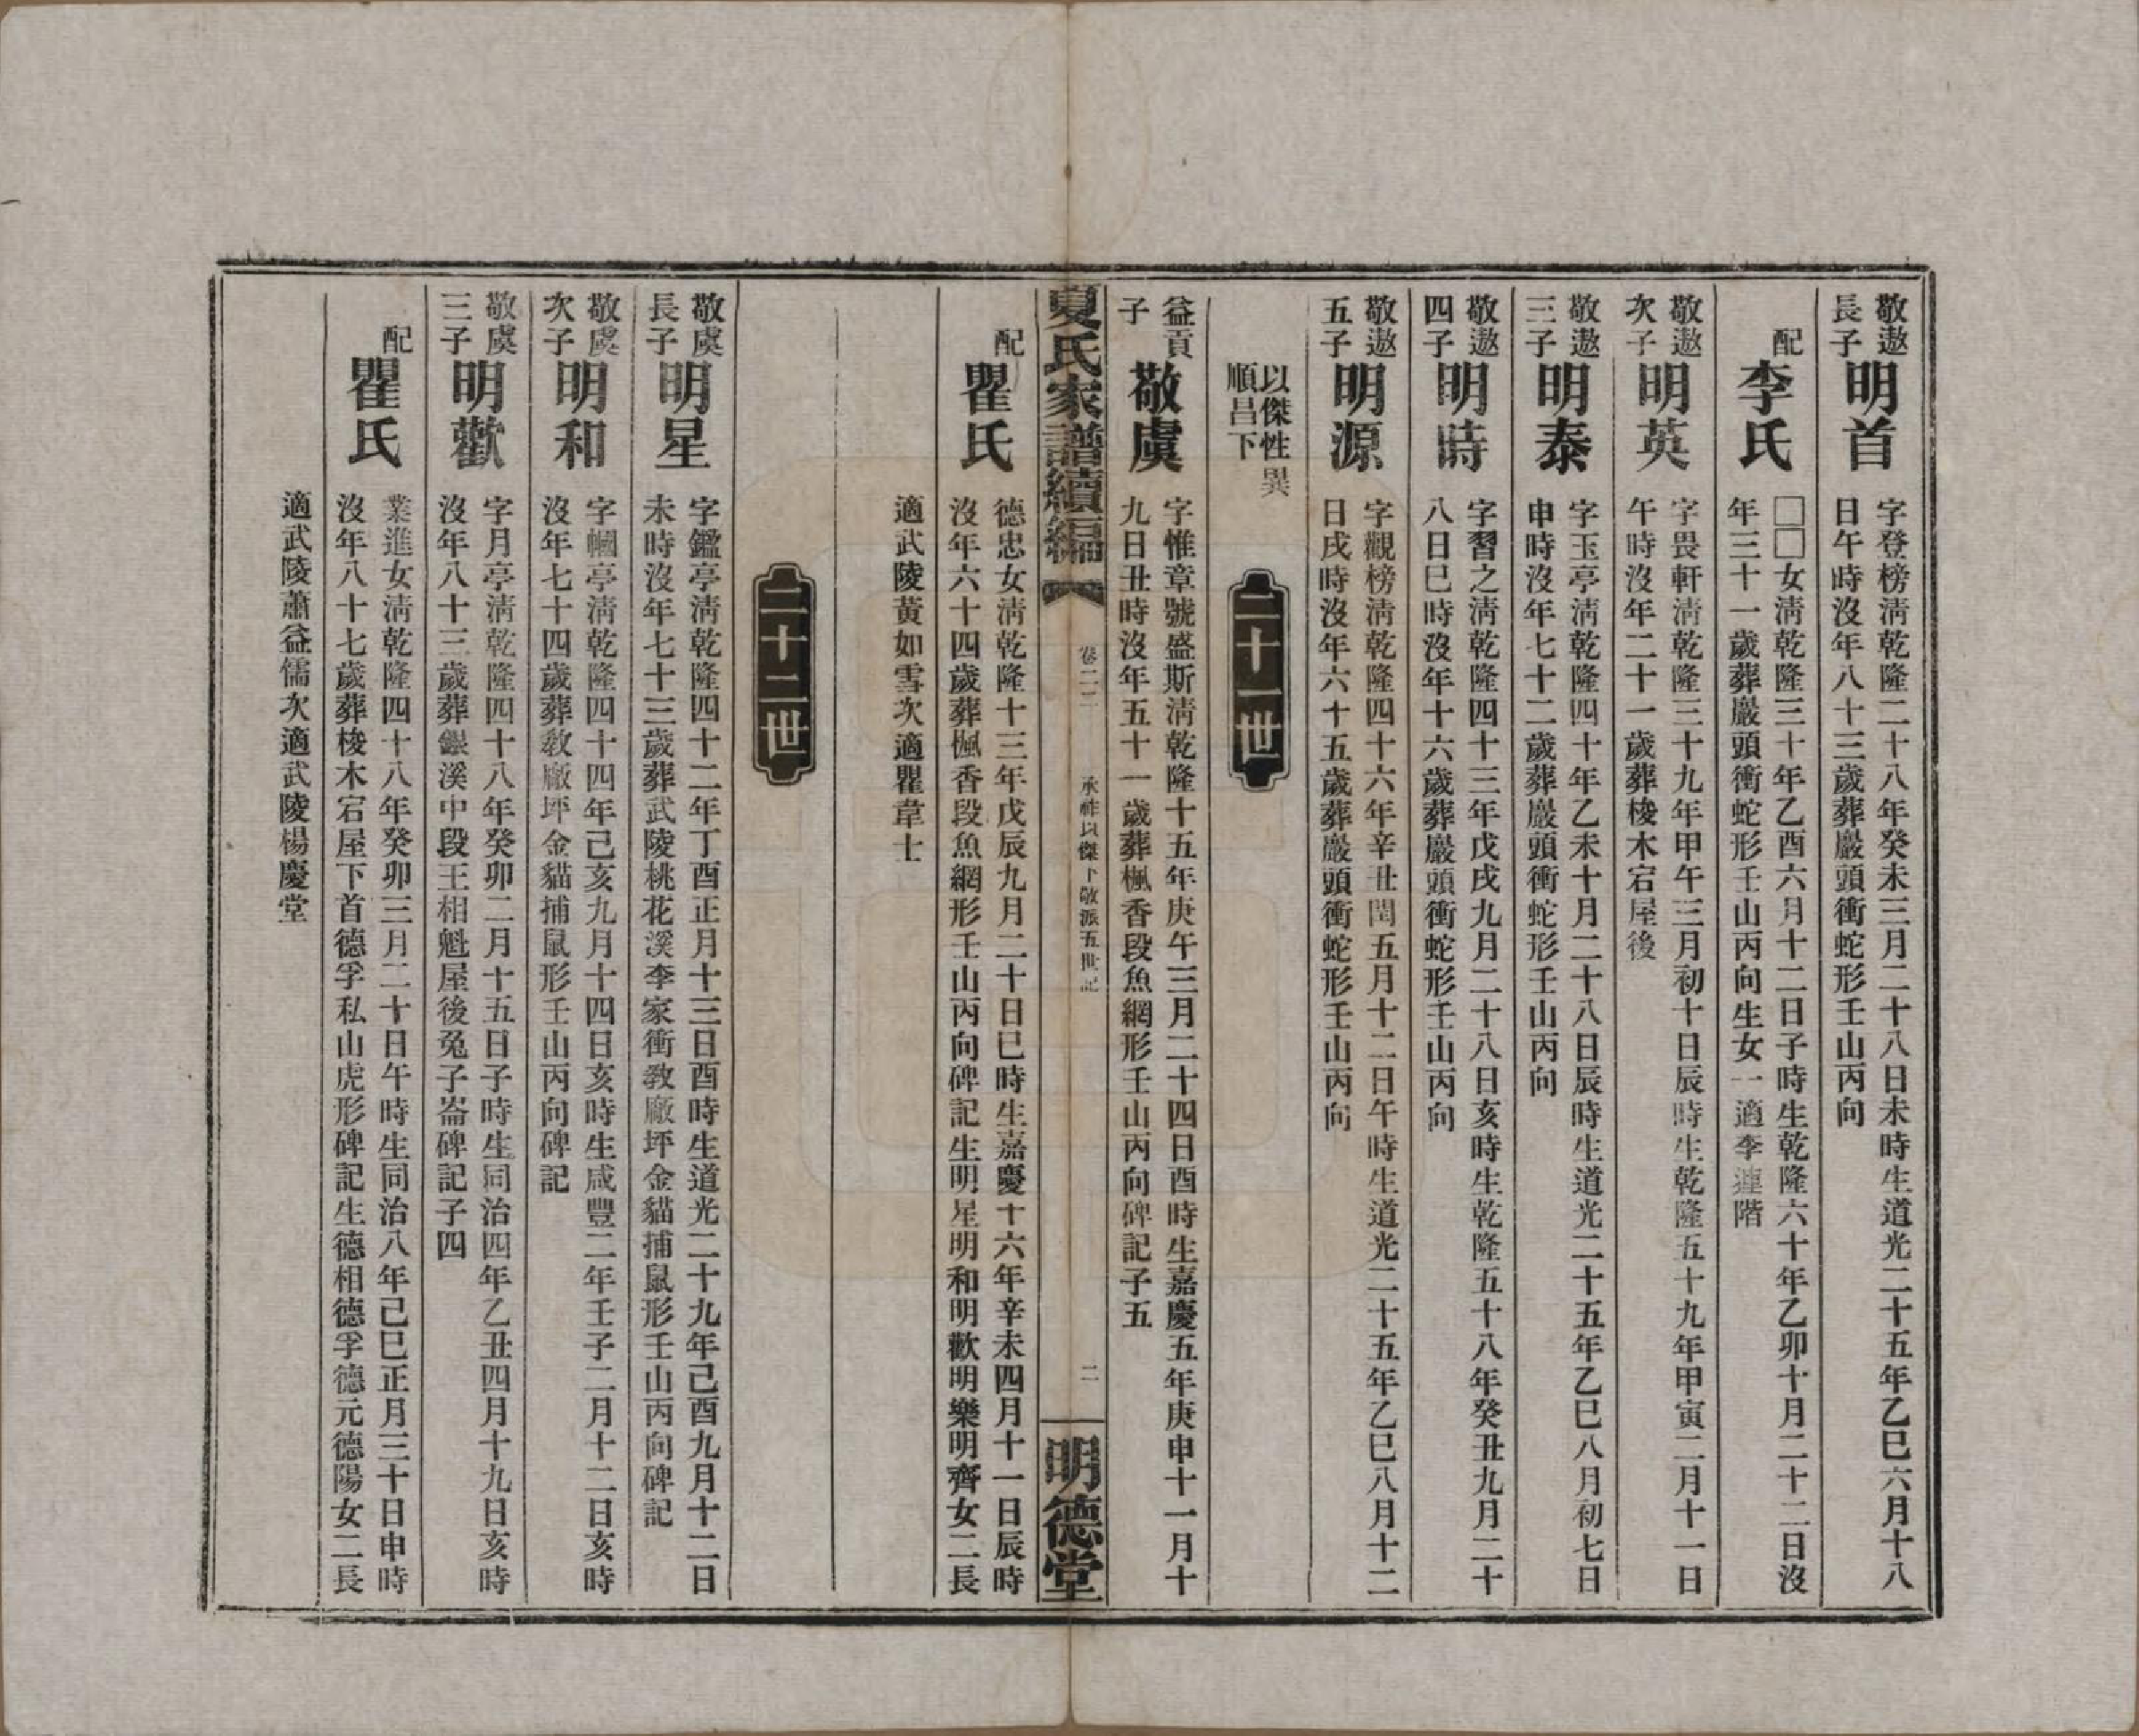 敬遨
長子
明首
字登榜淸乾隆二十八年癸未三月二十八日未時生道光二十五年乙巳六月十八
日午時沒年八十三歲葬巖頭衝蛇形壬山丙向
配
李氏
□□女淸乾隆三十年乙酉六月十二日子時生乾隆六十年乙卯十月二十二日沒
年三十一歲葬巖頭衝蛇形壬山丙向生女一適李連階
敬遨
次子
明英
字畏軒淸乾隆三十九年甲午三月初十日辰時生乾隆五十九年甲寅二月十一日
午時沒年二十一歲葬梭木宕屋後
敬遨
三子
明泰
字玉亭淸乾隆四十年乙未十月二十八日辰時生道光二十五年乙巳八月初七日
申時沒年七十二歲葬巖頭衝蛇形壬山丙向
敬遨
四子
明時
字習之淸乾隆四十三年戊戌九月二十八日亥時生乾隆五十八年癸丑九月二十
八日巳時沒年十六歲葬巖頭衝蛇形壬山丙向
敬遨
五子
明源
字觀榜淸乾隆四十六年辛丑閏五月十二日午時生道光二十五年乙巳八月十二
日戌時沒年六十五歲葬巖頭衝蛇形壬山丙向
以傑性異
順昌下
二十一世
益貢
子
敬虞
字惟章號盛斯淸乾隆十五年庚午三月二十四日酉時生嘉慶五年庚申十一月十
九日丑時沒年五十一歲葬楓香段魚網形壬山丙向碑記子五
夏氏家譜續編
卷二二
承祚以傑下敬派五世記
二
明德堂
配
瞿氏
德忠女淸乾隆十三年戊辰九月二十日巳時生嘉慶十六年辛未四月十一日辰時
沒年六十四歲葬楓香段魚網形壬山丙向碑記生明星明和明歡明樂明齊女二長
適武陵黃如雪次適瞿韋士
二十二世
敬虞
長子
明星
字鑑亭淸乾隆四十二年丁酉正月十三日酉時生道光二十九年己酉九月十二日
未時沒年七十三歲葬武陵桃花溪李家衝教廠坪金貓捕鼠形壬山丙向碑記
敬虞
次子
明和
字幗亭淸乾隆四十四年己亥九月十四日亥時生咸豐二年壬子二月十二日亥時
沒年七十四歲葬教廠坪金貓捕鼠形壬山丙向碑記
敬虞
三子
明歡
字月亭淸乾隆四十八年癸卯二月十五日子時生同治四年乙丑四月十九日亥時
沒年八十三歲葬銀溪中段王相魁屋後兔子崙碑記子四
配
瞿氏
業進女淸乾隆四十八年癸卯三月二十日午時生同治八年己巳正月三十日申時
沒年八十七歲葬梭木宕屋下首德孚私山虎形碑記生德相德孚德元德陽女二長
適武陵蕭益儒次適武陵楊慶堂